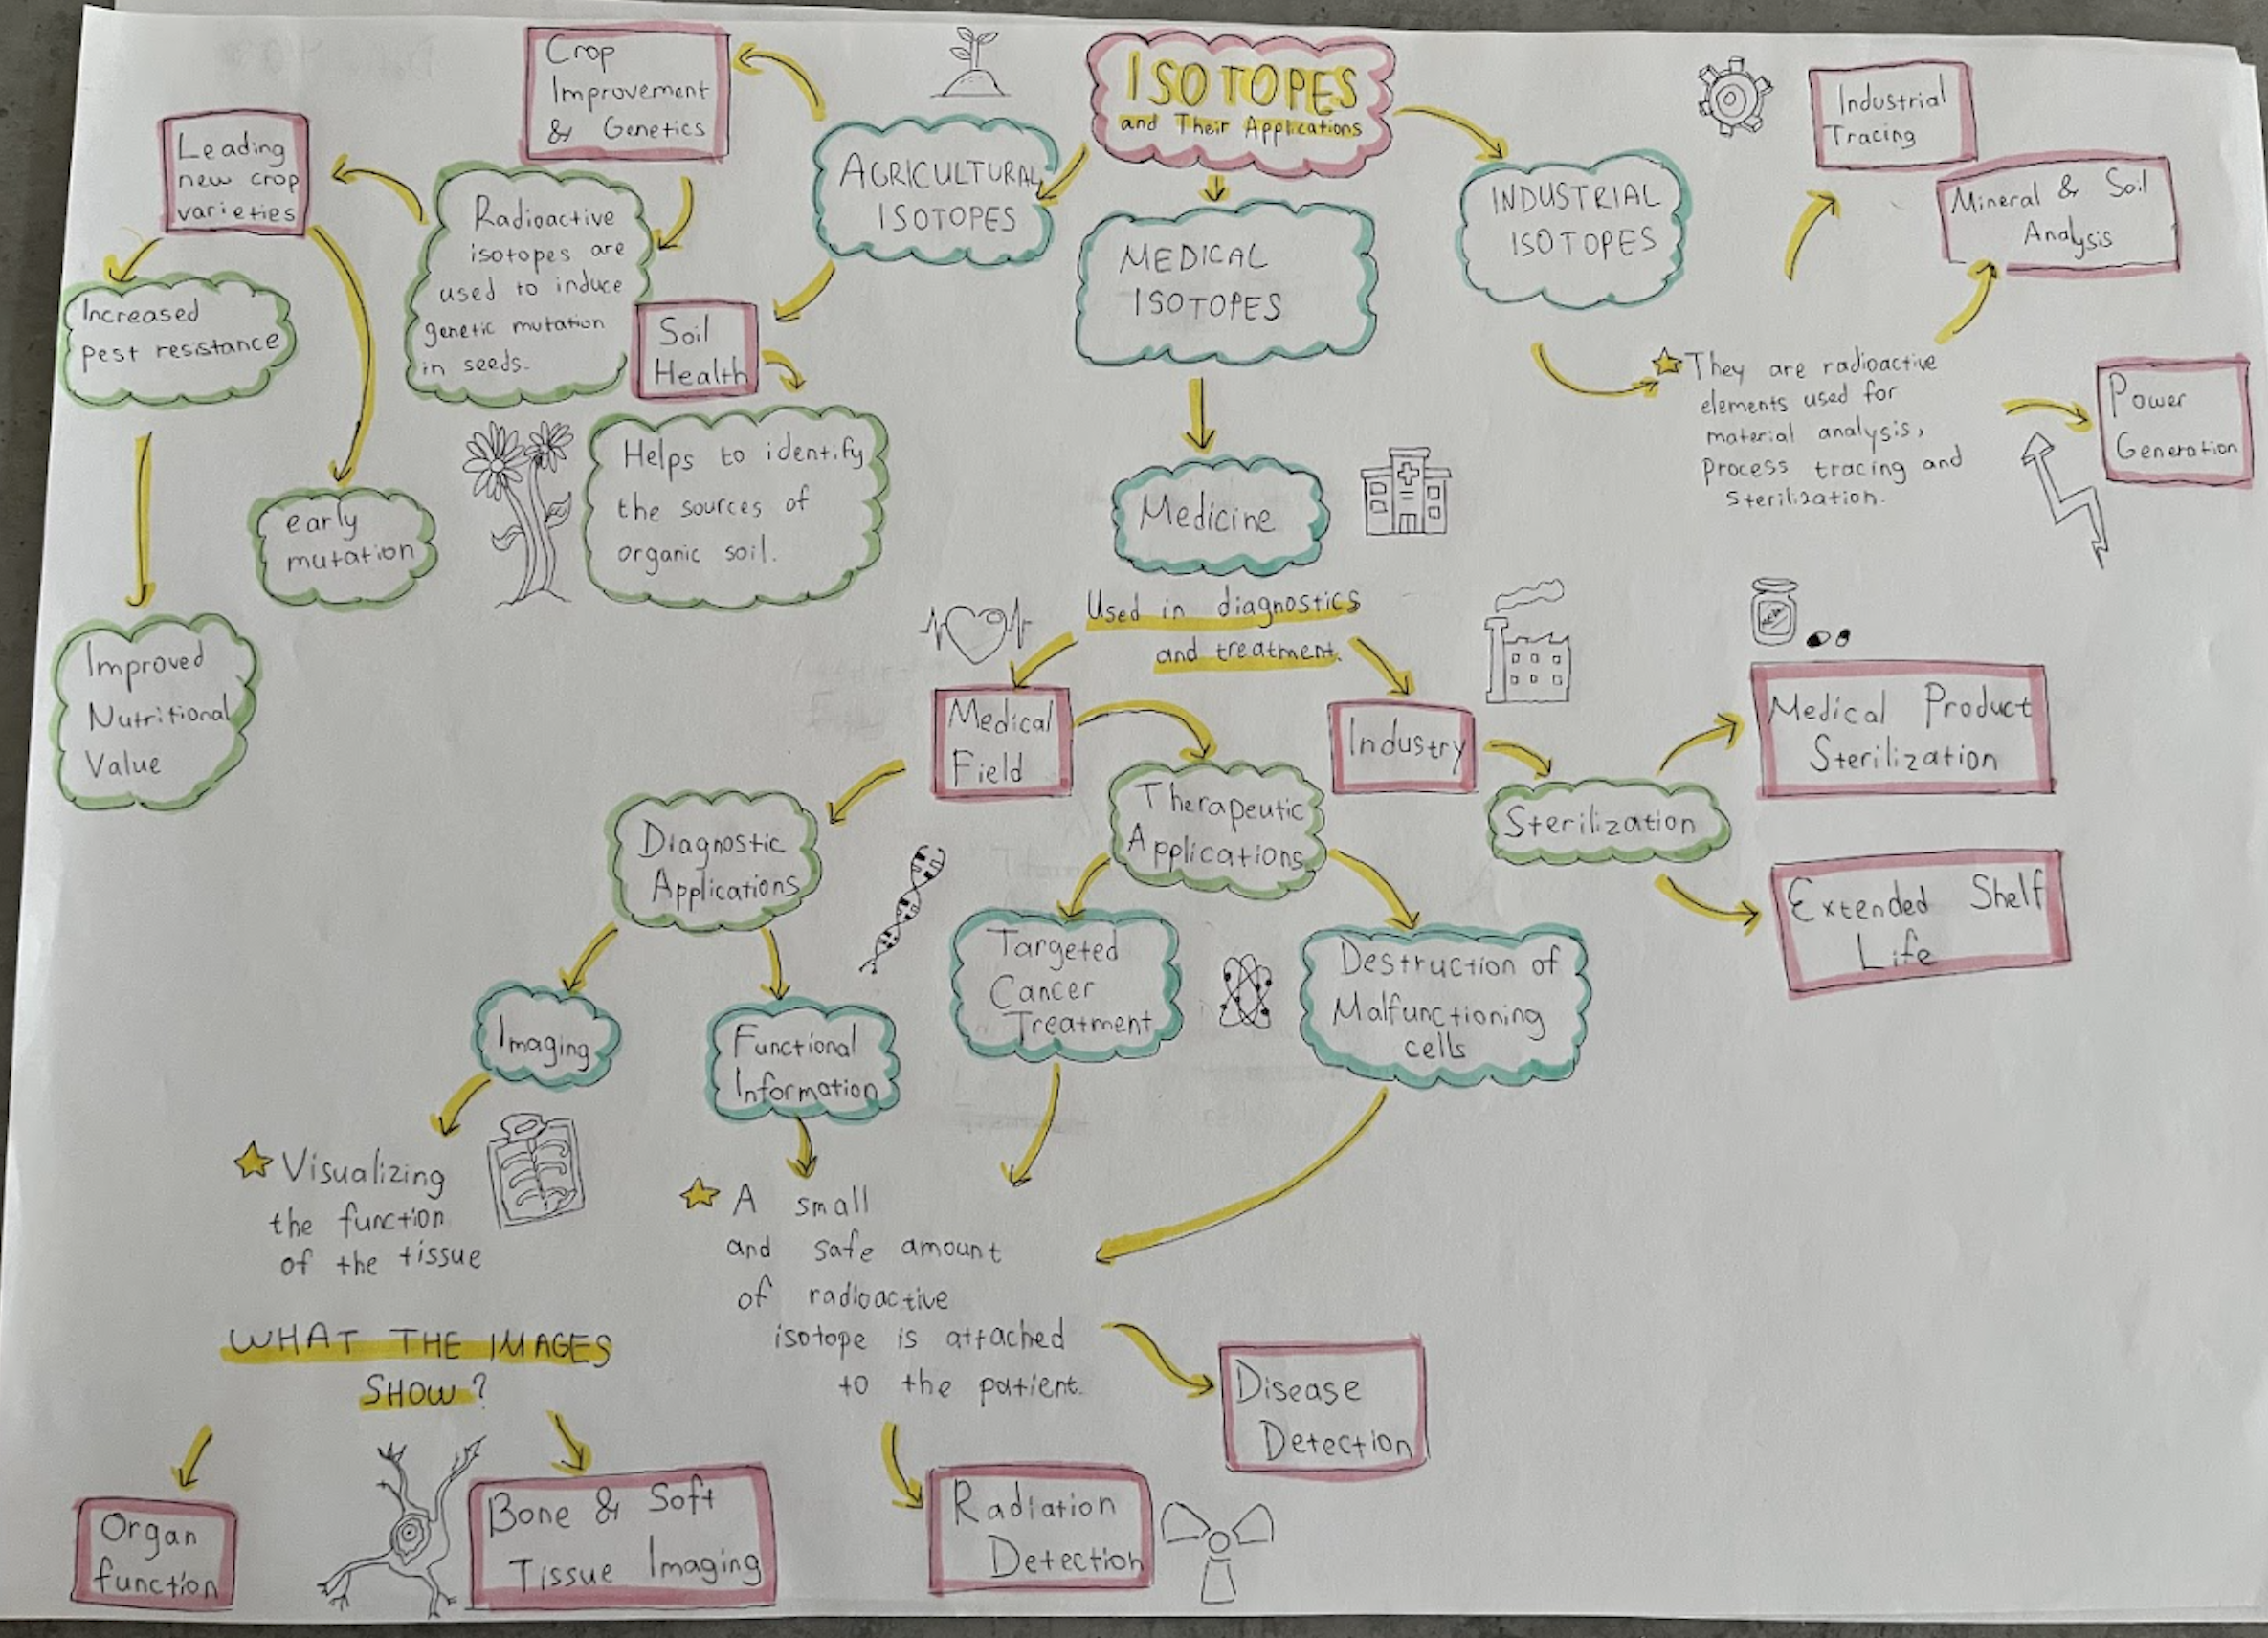 ISOTOPES
and Their Applications
AGRICULTURAL
ISOTOPES
Crop
Improvement
& Genetics
Radioactive
isotopes are
used to induce
genetic mutation
in seeds.
Leading
new crop
varieties
Increased
pest resistance
early
mutation
Improved
Nutritional
Value
Soil
Health
Helps to identify
the sources of
organic soil.
MEDICAL
ISOTOPES
Medicine
Used in diagnostics
and treatment.
Medical
Field
Diagnostic
Applications
Imaging
Visualizing
the function
of the tissue
WHAT THE IMAGES
SHOW?
Organ
function
Bone & Soft
Tissue Imaging
Functional
Information
Therapeutic
Applications
Targeted
Cancer
Treatment
Destruction of
Malfunctioning
cells
A small
and safe amount
of radioactive
isotope is attached
to the patient.
Radiation
Detection
Disease
Detection
Industry
Sterilization
Medical Product
Sterilization
Extended Shelf
Life
INDUSTRIAL
ISOTOPES
They are radioactive
elements used for
material analysis,
process tracing and
sterilization.
Industrial
Tracing
Mineral & Soil
Analysis
Power
Generation